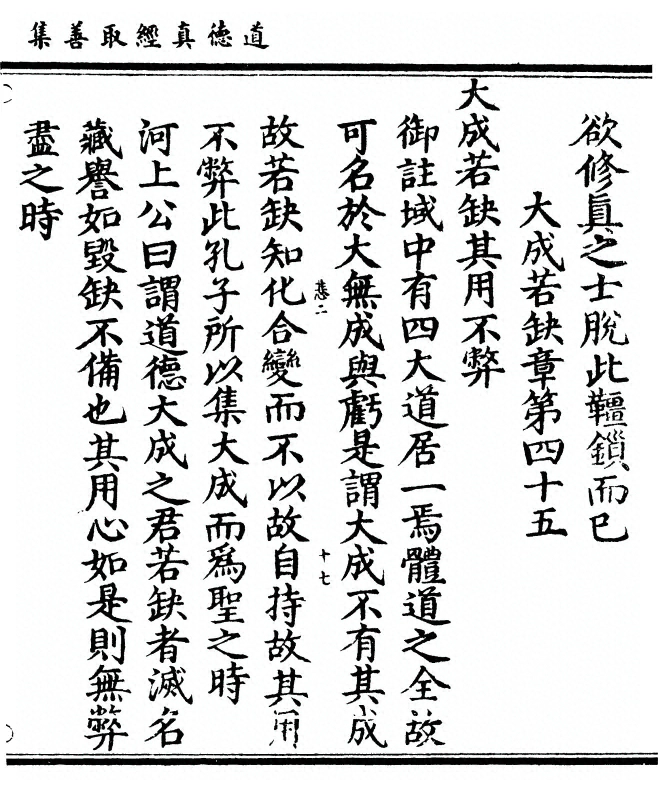 道德真經取善集
欲修眞之士脫此韁鎖而已
大成若缺章第四十五
大成若缺其用不弊
御註域中有四大道居一焉體道之全故
可名於大無成與虧是謂大成不有其成
卷二
十七
故若缺知化合變而不以故自持故其用
不弊此孔子所以集大成而爲聖之時
河上公曰謂道德大成之君若缺者滅名
藏譽如毀缺不備也其用心如是則無弊
盡之時